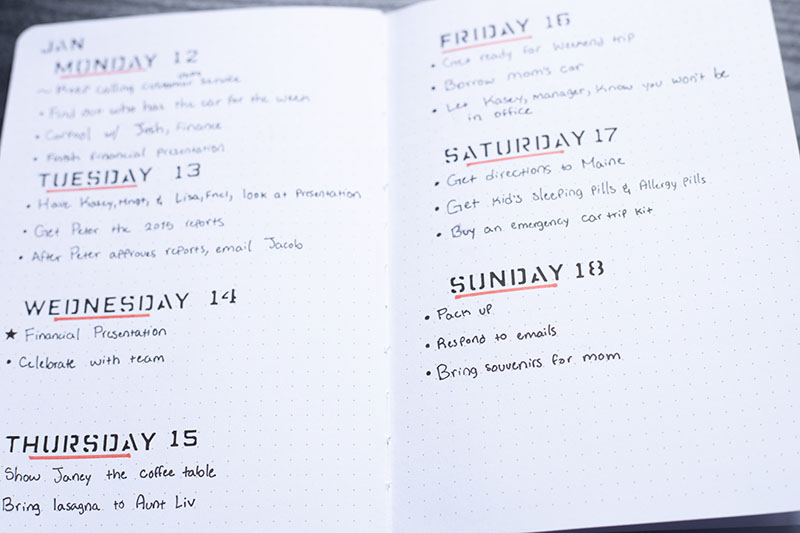 JAN
MONDAY 12
~ Meet calling customer service
• Find out who has the car for the week
• Control w/ Josh, Finance
• Finish financial presentation
TUESDAY 13
• Have Kasey, Mngt, & Lisa, Fncl, look at Presentation
• Get Peter the 2015 reports
• After Peter approves reports, email Jacob
WEDNESDAY 14
★ Financial Presentation
• Celebrate with team
THURSDAY 15
Show Janey the coffee table
Bring lasagna to Aunt Liv
FRIDAY 16
• Get ready for weekend trip
• Borrow mom's car
• Let Kasey, manager, know you won't be
in office
SATURDAY 17
• Get directions to Maine
• Get kid's sleeping pills & Allergy pills
• Buy an emergency car trip kit
SUNDAY 18
• Pack up
• Respond to emails
• Bring souvenirs for mom